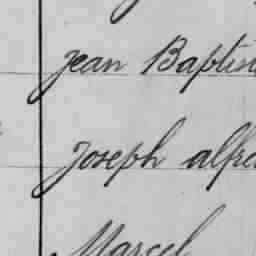 Jean Baptis
Joseph alfre
Marcel